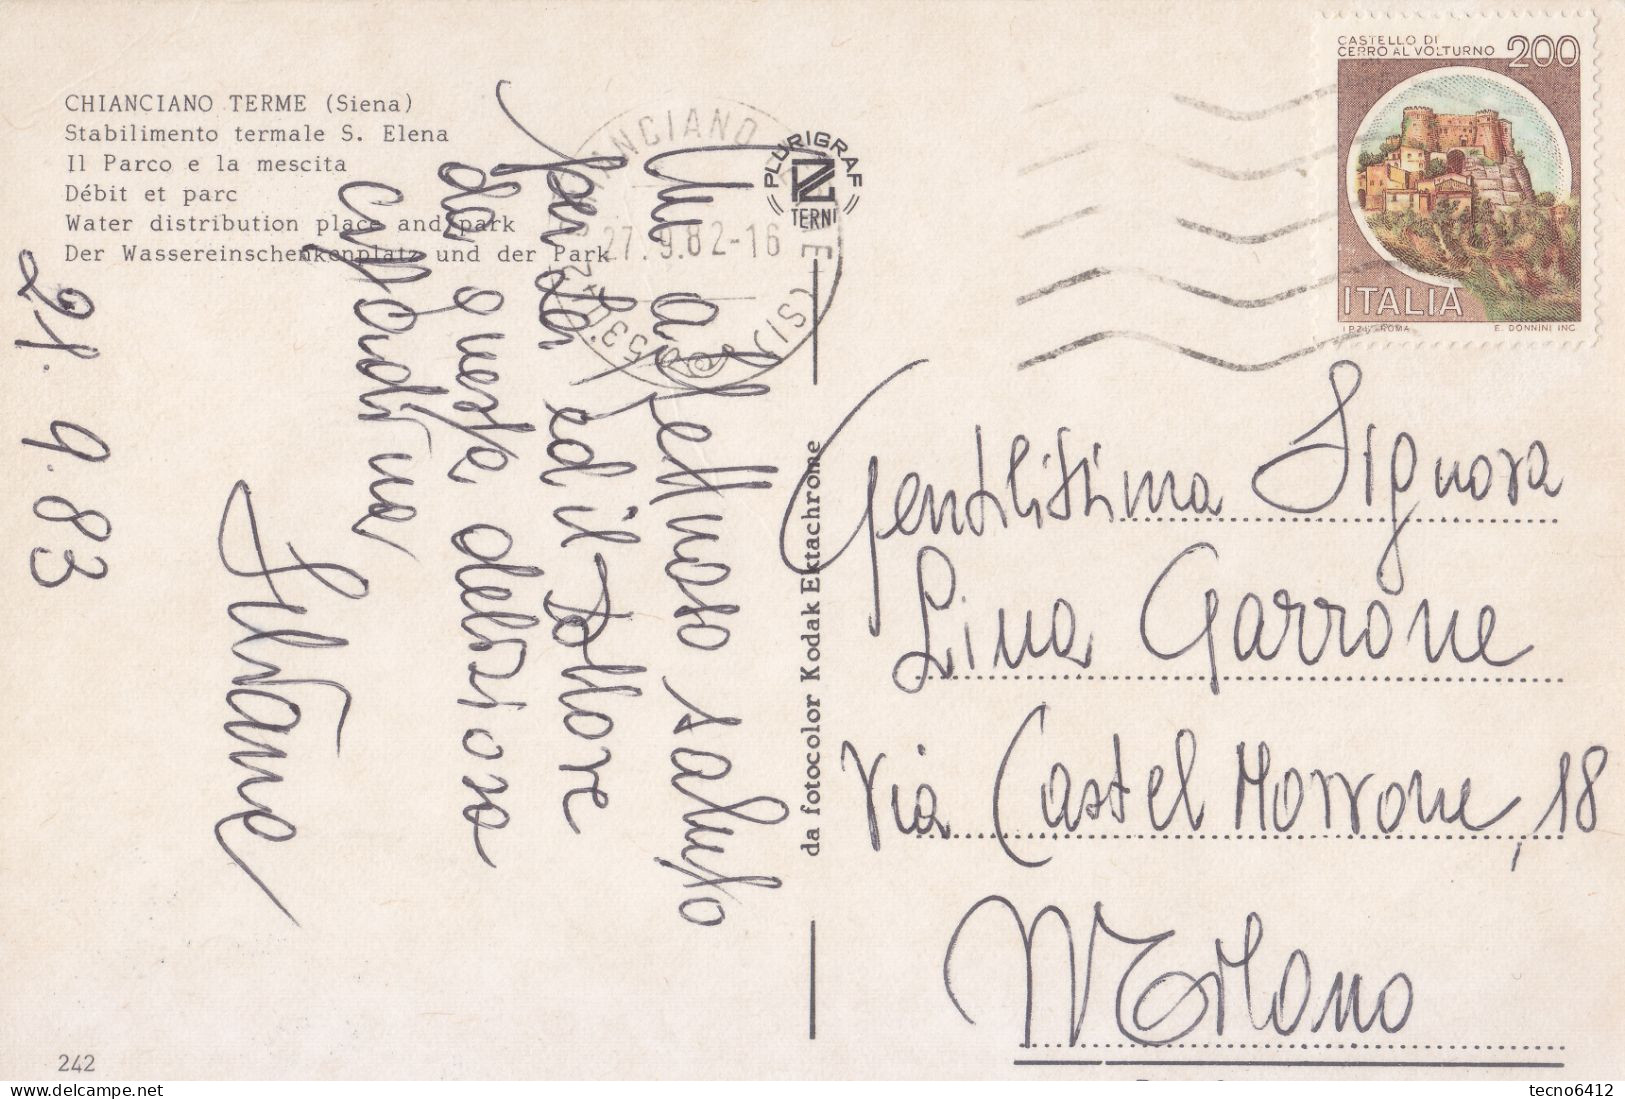 CHIANCIANO TERME (Siena)
Stabilimento termale S. Elena
Il Parco e la mescita
Débit et parc
Water distribution place and park
Der Wassereinschenkenplatz und der Park
Un affettuoso saluto
per lei ed il Dottore
da questa deliziosa
cittadina
Silvana
21.9.83
242
CHIANCIANO TERME
(SI)
27.9.82-16
530
PLURIGRAF
TERNI
da fotocolor Kodak Ektachrome
CASTELLO DI
CERRO AL VOLTURNO 200
ITALIA
I.P.Z.S. ROMA E. DONNINI INC.
Gentilissima Signora
Lina Garrone
Via Castel Morrone, 18
Milano
tecno6412